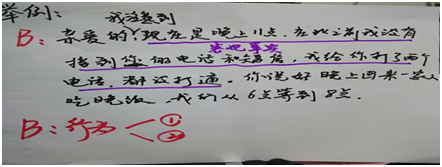 举例: 我注意到
B: 亲爱的!现在是晚上11点.在此之前我没有
客观事实
接到你的电话和短信,我给你打了两个
电话,都没打通。你说好晚上回来一家人
吃晚饭.我们从6点等到8点.
B: 行为 ① ②